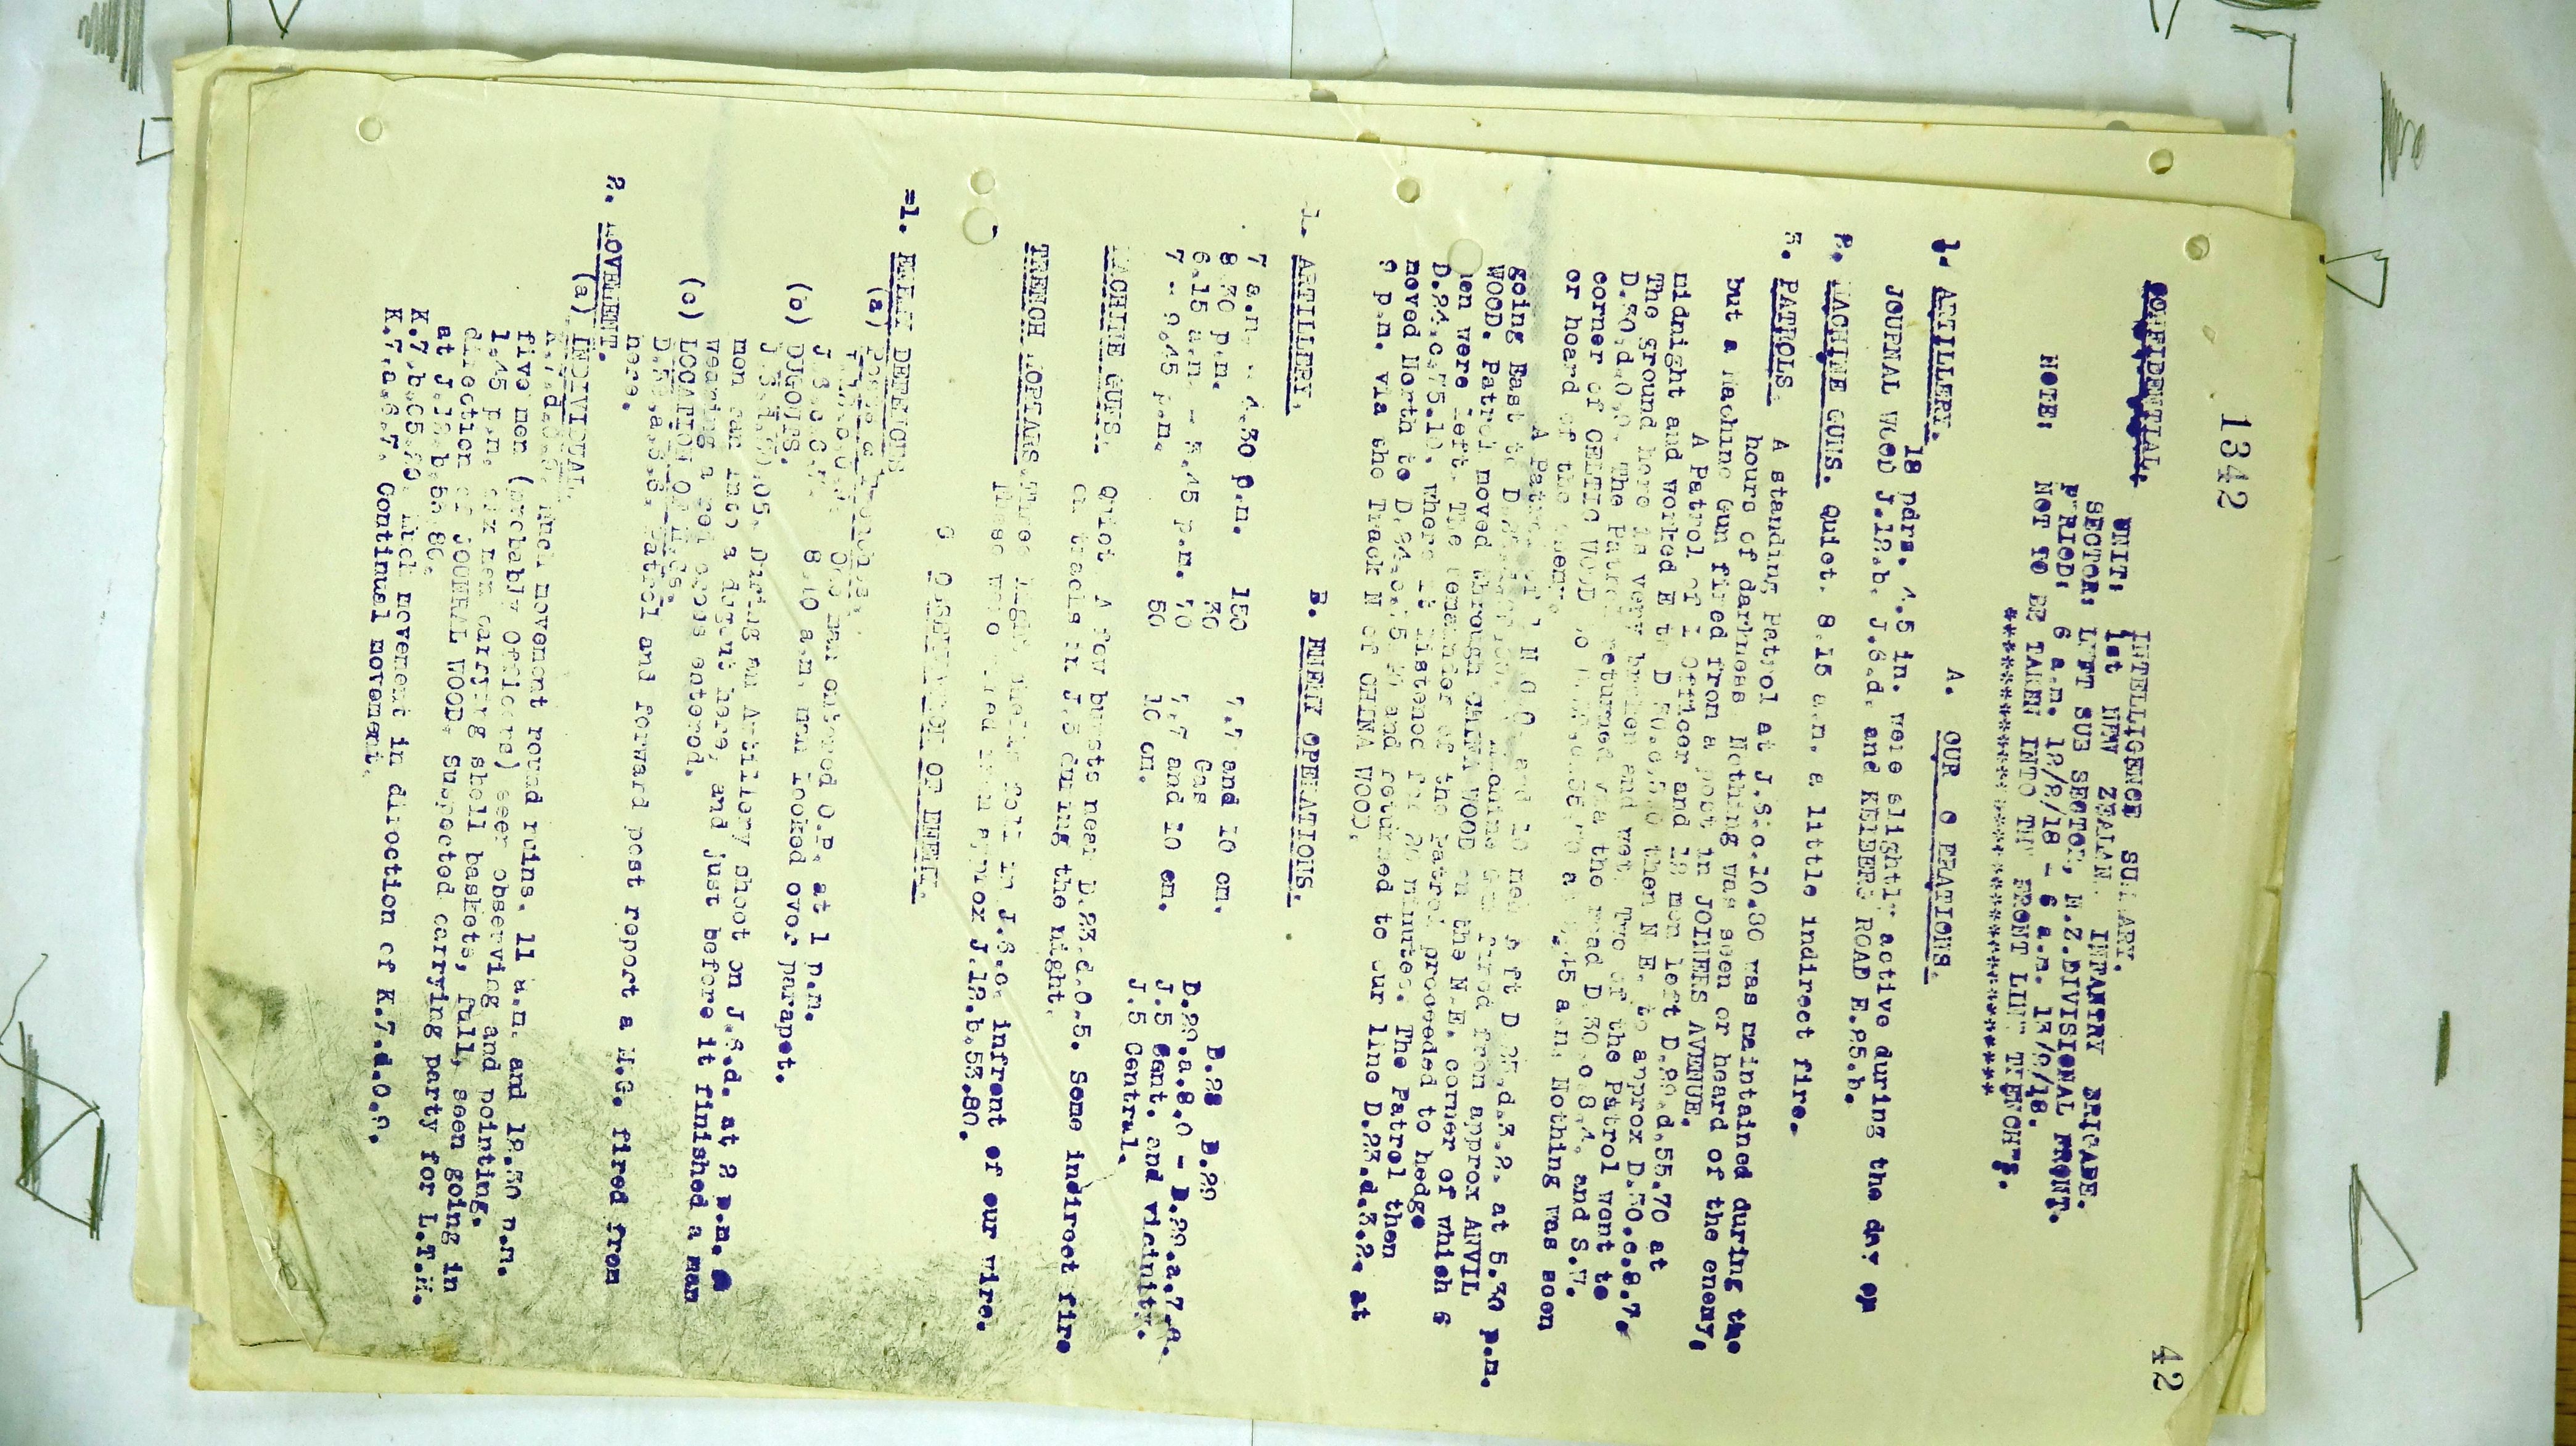 1342
42
CONFIDENTIAL.
INTELLIGENCE SUMMARY.
UNIT: 1st NEW ZEALAND INFANTRY BRIGADE.
SECTOR: LEFT SUB SECTOR, N.Z.DIVISIONAL FRONT.
PERIOD: 6 a.m. 12/2/18 - 6 a.m. 13/2/18.
NOTE: NOT TO BE TAKEN INTO THE FRONT LINE TRENCHES.
A. OUR OPERATIONS.
1. ARTILLERY.
18 pdrs. 4.5 in. were slightly active during the day on
JOURNAL WOOD J.12.b. J.6.d. and KEIBERG ROAD E.25.b.
2. MACHINE GUNS. Quiet. 8.15 a.m. a little indirect fire.
3. PATROLS. A standing Patrol at J.5.c.10.80 was maintained during the
hours of darkness. Nothing was seen or heard of the enemy,
but a Machine Gun fired from a post in JOINERS AVENUE.
A Patrol of 1 Officer and 12 men left D.29.d.55.70 at
midnight and worked E to D.30. then N.E. to approx D.30.c.8.7.
The ground here is very broken and wet. Two of the Patrol went to
D.30.d.0.9. The Patrol returned via the road D.30.c.8.4. and S.W.
corner of CELTIC WOOD to at .45 a.m. Nothing was seen
or heard of the enemy.
A Patrol of 1 N.C.O. and 10 men left D.23.d.3.2. at 5.30 p.m.
going East to Machine Gun fired from approx ANVIL
WOOD. Patrol moved through CHINA WOOD to the N.E. corner of which 6
men were left. The remainder of the Patrol proceeded to hedge
D.24.c.75.10. where it listened for 20 minutes. The Patrol then
moved North to and returned to our line D.23.d.3.2. at
9 p.m. via the Track N of CHINA WOOD.
B. ENEMY OPERATIONS.
1. ARTILLERY.
7 a.m. - 4.30 p.m. 150 7.7 and 10 cm. D.28 D.29
8.30 p.m. 30 Gas D.29.a.8.0 - D.29.a.7.2.
6.15 a.m. - 3.45 p.m. 70 7.7 and 10 cm. J.5 Cent. and vicinity.
7 - 9.45 p.m. 50 10 cm. J.5 Central.
MACHINE GUNS. Quiet. A few bursts near D.23.d.0.5. Some indirect fire
on tracks in J.5 during the night.
TRENCH MORTARS. Three light shells fell in J.6.c. infront of our wire.
These were fired from approx J.12.b.53.80.
C. OBSERVATION OF ENEMY.
1. ENEMY DEFENCES
One man entered O.P. at 1 p.m.
8.40 a.m. man looked over parapet.
(b) DUGOUTS.
During an Artillery shoot on J.6.d. at 2 p.m. a
man ran into a dugout here, and just before it finished a man
wearing a red cross entered.
(c) LOCATION OF M.Gs.
Patrol and forward post report a M.G. fired from
here.
2. MOVEMENT.
(a) INDIVIDUAL.
Much movement round ruins. 11 a.m. and 12.30 p.m.
five men (probably Officers) seen observing and pointing.
1.45 p.m. six men carrying shell baskets, full, seen going in
direction of JOURNAL WOOD. Suspected carrying party for L.T.M.
at J.12.b.55.80.
K.7.b.05.70. Much movement in direction of K.7.d.0.9.
K.7.a.6.7. Continual movement.